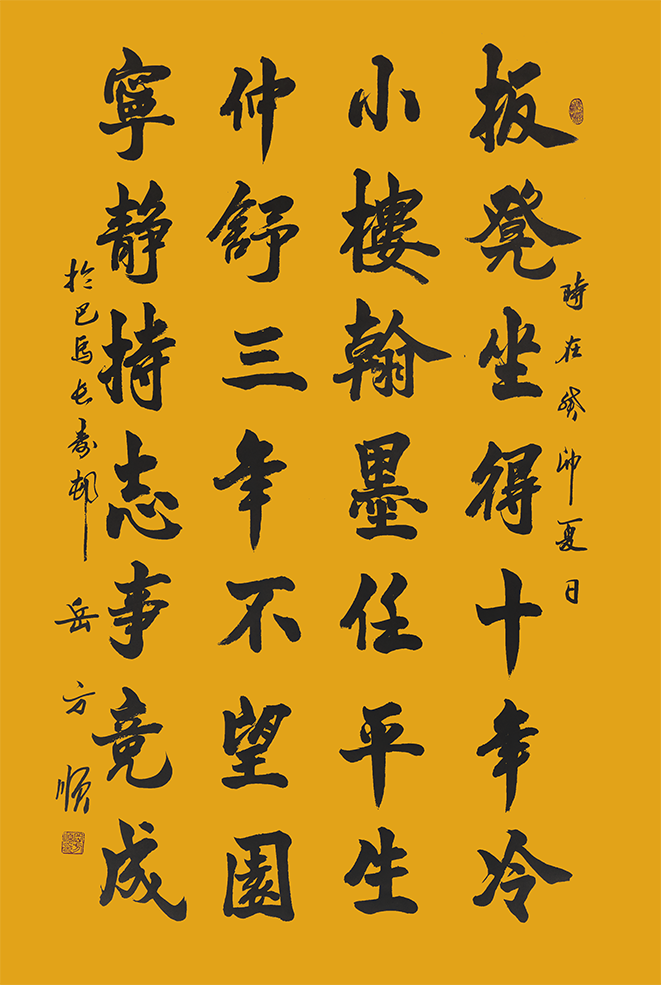 時在癸卯夏日
板凳坐得十年冷
小樓翰墨任平生
仲舒三年不望園
寧静持志事竟成
於巴馬長壽邨 岳方順